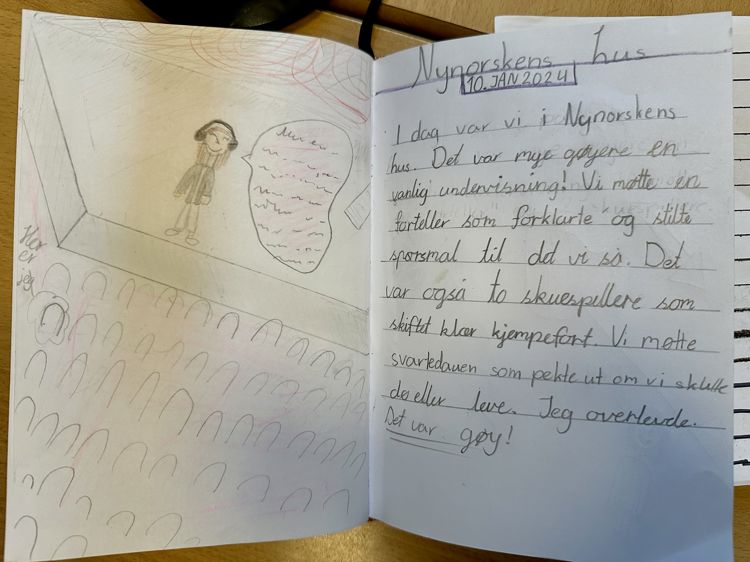 Her
er
jeg
Nynorskens hus
10. JAN 2024
I dag var vi i Nynorskens
hus. Det var mye gøyere en
vanlig undervisning! Vi møtte en
forteller som forklarte og stilte
spørsmål til det vi så. Det
var også to skuespillere som
skiftet klær kjempefort. Vi møtte
svartedauen som pekte ut om vi skulle
dø eller leve. Jeg overlevde.
Det var gøy!